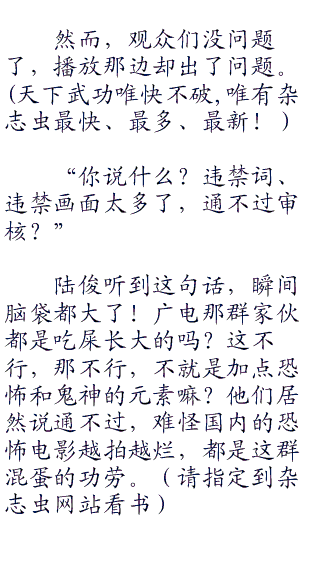 然而，观众们没问题
了，播放那边却出了问题。
(天下武功唯快不破,唯有杂
志虫最快、最多、最新！)
“你说什么？违禁词、
违禁画面太多了，通不过审
核？”
陆俊听到这句话，瞬间
脑袋都大了！广电那群家伙
都是吃屎长大的吗？这不
行，那不行，不就是加点恐
怖和鬼神的元素嘛？他们居
然说通不过，难怪国内的恐
怖电影越拍越烂，都是这群
混蛋的功劳。（请指定到杂
志虫网站看书）